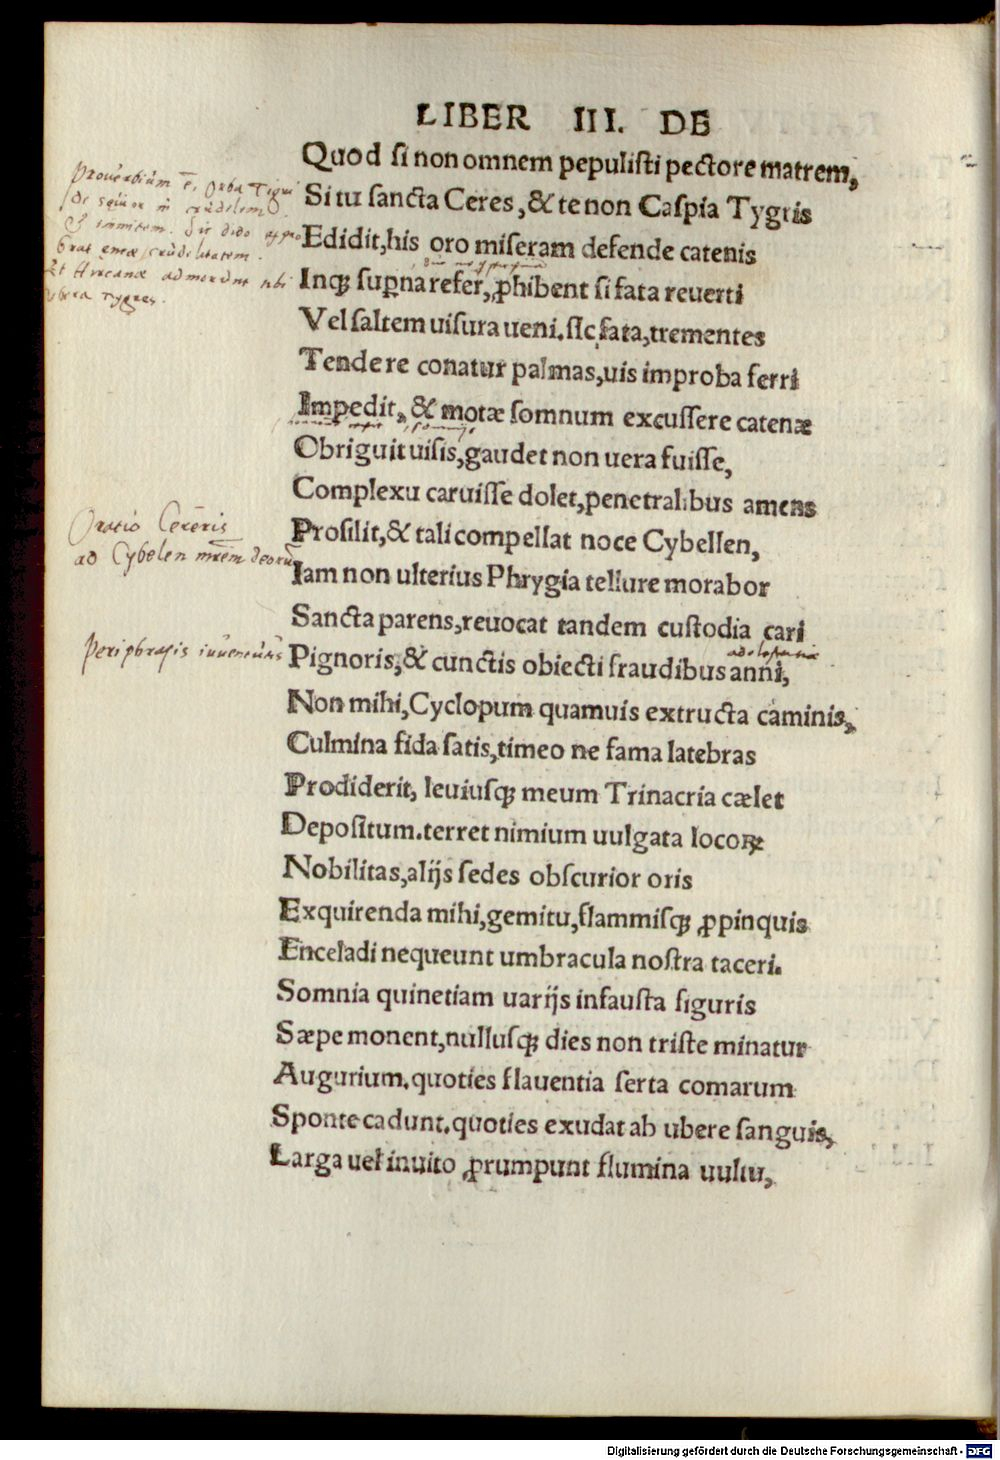 LIBER III. DE
Quod si non omnem pepulisti pectore matrem,
Si tu sancta Ceres, & te non Caspia Tygris
Edidit, his oro miseram defende catenis
Inq; supꝑna refer, ꝓhibent si fata reuerti
Vel saltem uisura ueni. sic fata, trementes
Tendere conatur palmas, uis improba ferri
Impedit, & motæ somnum excussere catenæ
Obriguit uisis, gaudet non uera fuisse,
Complexu caruisse dolet, penetralibus amens
Prosilit, & tali compellat noce Cybellen,
Iam non ulterius Phrygia tellure morabor
Sancta parens, reuocat tandem custodia cari
Pignoris, & cunctis obiecti fraudibus anni,
Non mihi, Cyclopum quamuis extructa caminis,
Culmina fida satis, timeo ne fama latebras
Prodiderit, leuiusq; meum Trinacria cælet
Depositum. terret nimium uulgata locoꝝ
Nobilitas, alijs sedes obscurior oris
Exquirenda mihi, gemitu, flammisq; ꝓpinquis
Enceladi nequeunt umbracula nostra taceri.
Somnia quinetiam uarijs infausta figuris
Sæpe monent, nullusq; dies non triste minatur
Augurium. quoties flauentia serta comarum
Sponte cadunt. quoties exudat ab ubere sanguis,
Larga uel inuito ꝓrumpunt flumina uultu,
Prouerbium ē, Orba Tigri
de sæuior in crudelem
& immitem. Sic dido
brat eneæ crudelitatem.
Et Hircanæ admorunt ubi
ubera tygres.
Oratio Cereris
ad Cybelen mr̄em deorū
Periphrasis iuuentutis
adolescentiæ
Digitalisierung gefördert durch die Deutsche Forschungsgemeinschaft - DFG